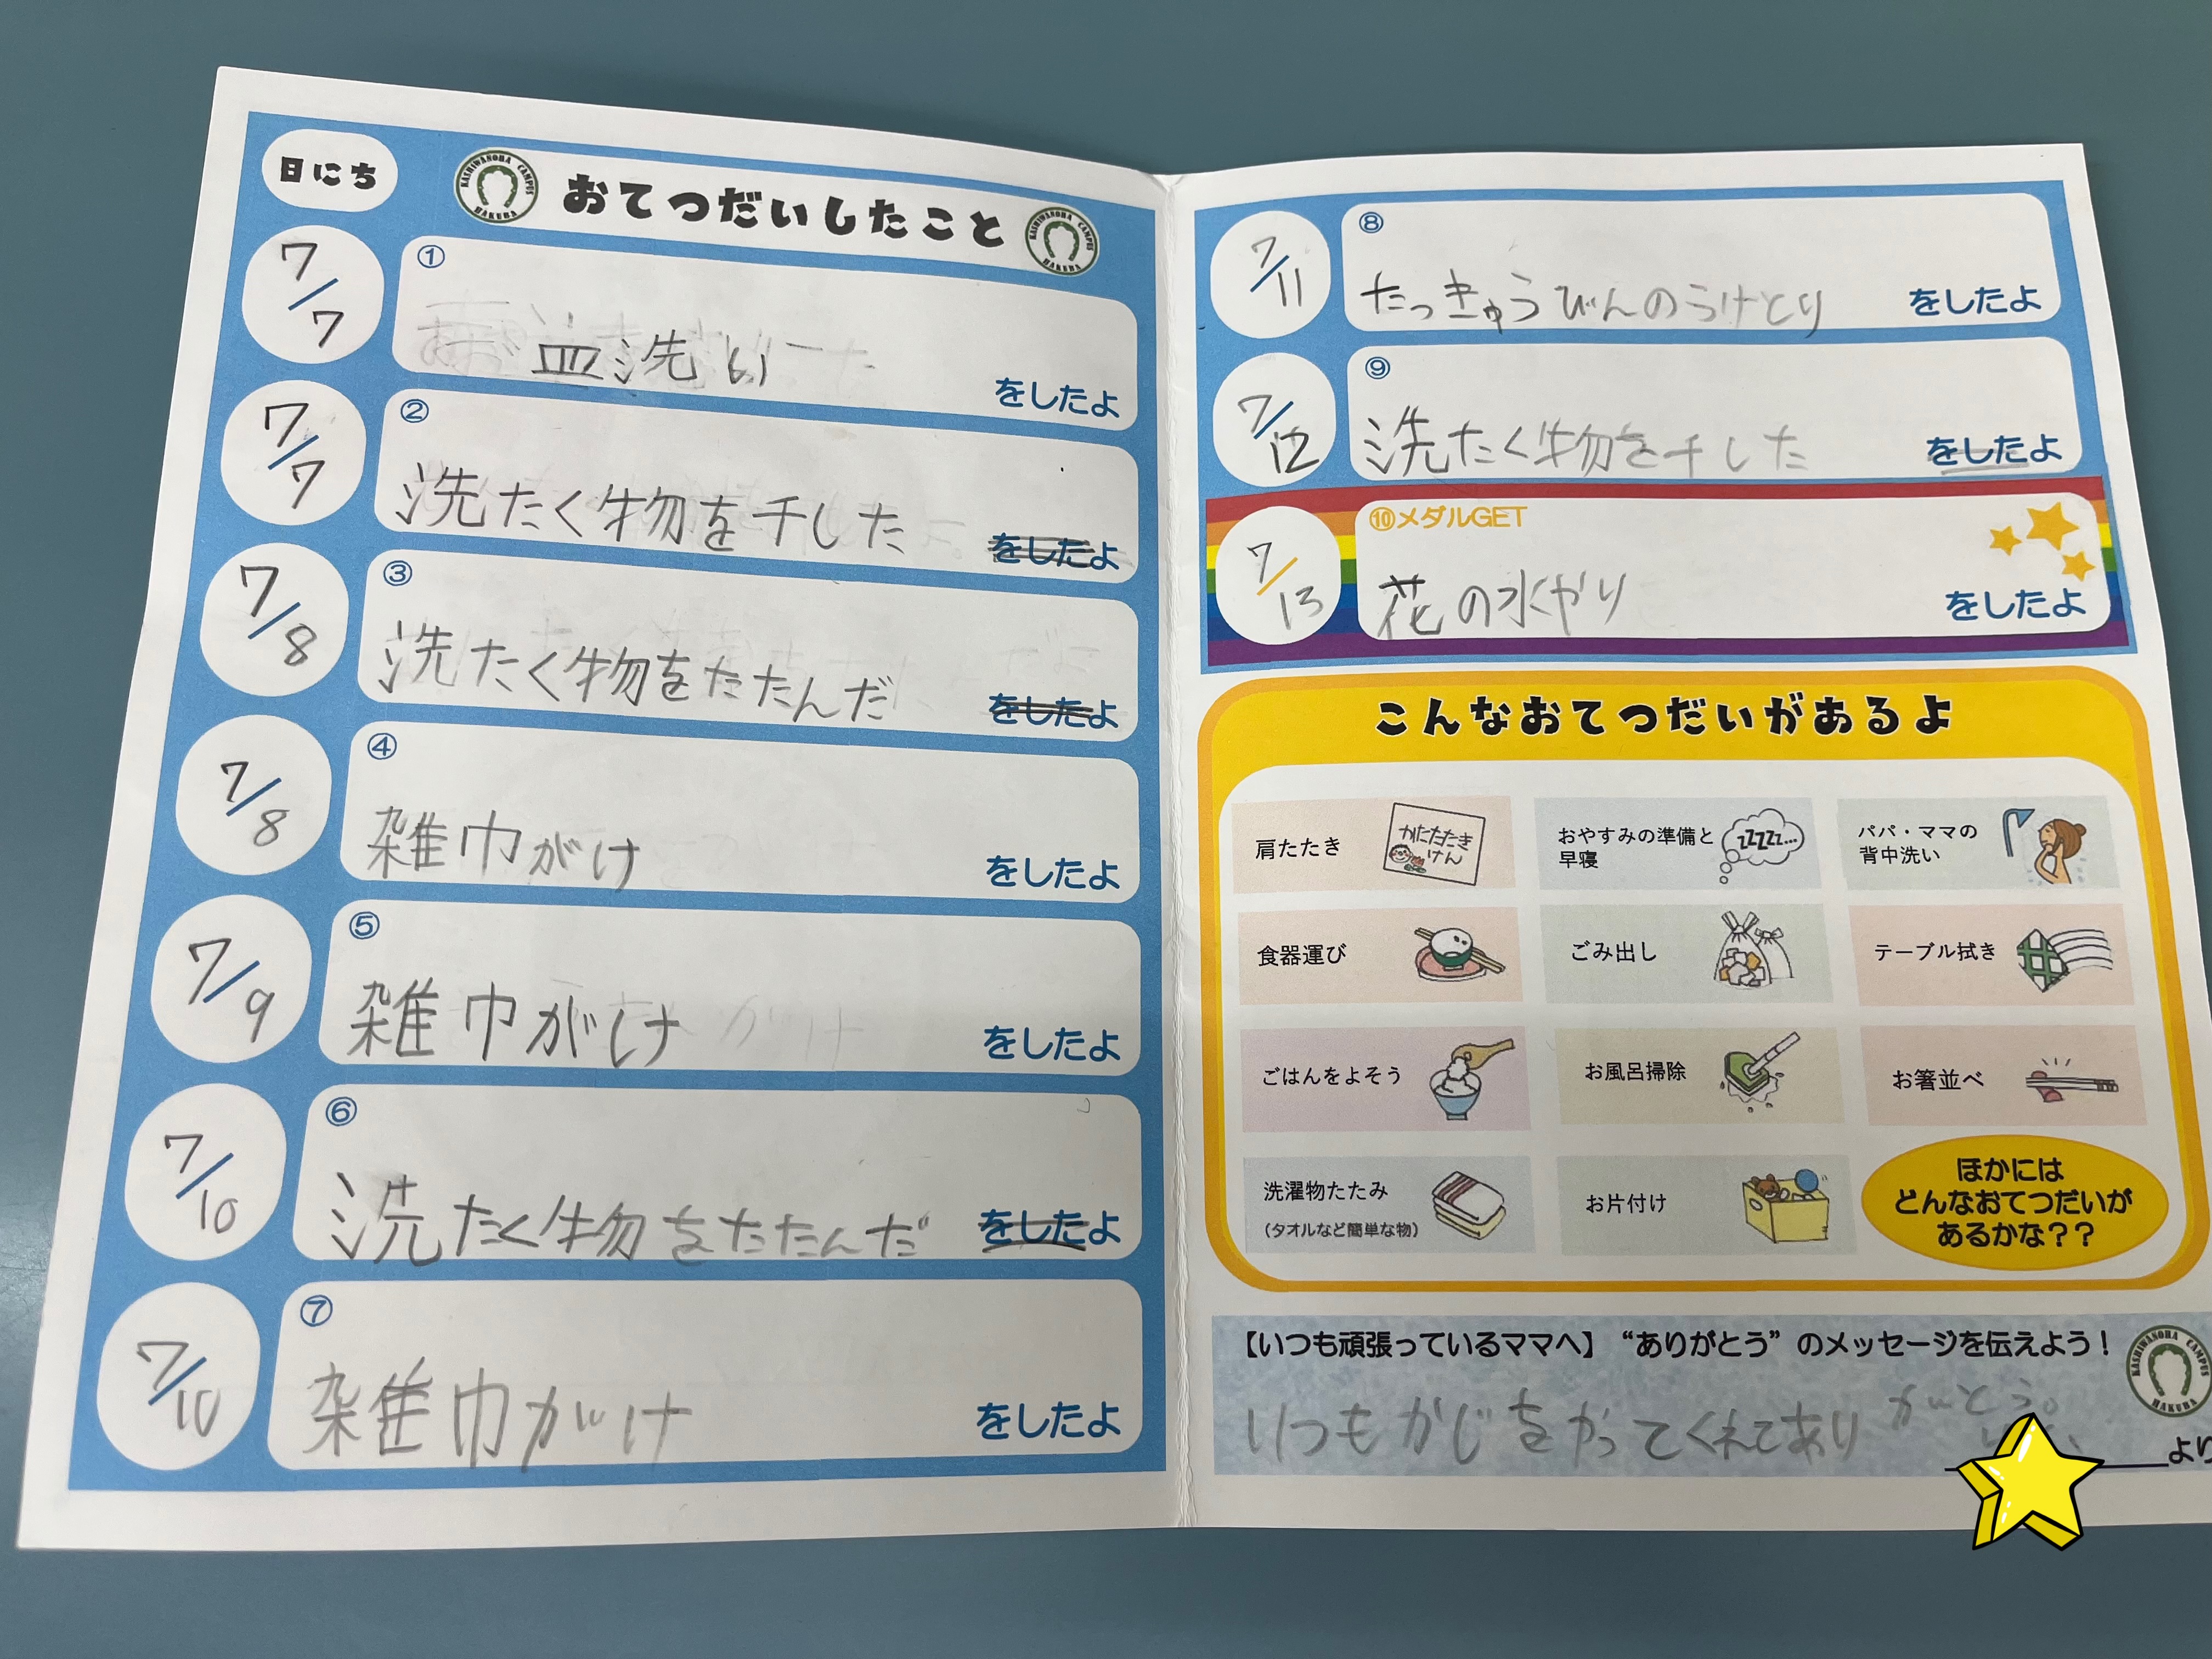 日にち
おてつだいしたこと
KASHIWANOHA CAMPUS HAKUBA
KASHIWANOHA CAMPUS HAKUBA
7/7
①
お皿洗い
をしたよ
7/7
②
洗たく物を干した
をしたよ
7/8
③
洗たく物をたたんだ
をしたよ
7/8
④
雑巾がけ
をしたよ
7/9
⑤
雑巾がけ
をしたよ
7/10
⑥
洗たく物をたたんだ
をしたよ
7/10
⑦
雑巾がけ
をしたよ
7/11
⑧
たっきゅうびんのうけとり
をしたよ
7/12
⑨
洗たく物を干した
をしたよ
7/13
⑩メダルGET
花の水やり
をしたよ
こんなおてつだいがあるよ
肩たたき
かたたたき
けん
おやすみの準備と
早寝
zzzzz...
パパ・ママの
背中洗い
食器運び
ごみ出し
テーブル拭き
ごはんをよそう
お風呂掃除
お箸並べ
洗濯物たたみ
(タオルなど簡単な物)
お片付け
ほかには
どんなおてつだいが
あるかな？？
【いつも頑張っているママへ】“ありがとう”のメッセージを伝えよう！
KASHIWANOHA CAMPUS HAKUBA
いつもかじをやってくれてありがとう。
より